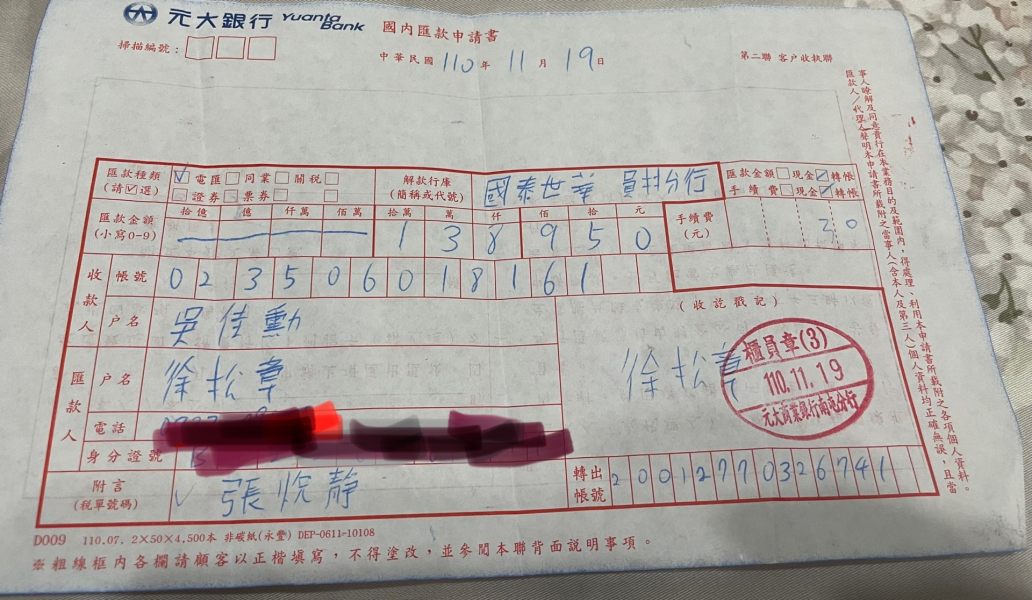 元大銀行 Yuanta Bank 國內匯款申請書
掃描編號：
中華民國 110 年 11 月 19 日
第二聯 客戶收執聯
匯款種類 (請☑選) ☑電匯 □同業 □關稅 □證券 □票券
解款行庫 (簡稱或代號) 國泰世華 員林分行
匯款金額 □現金 ☑轉帳
手續費 □現金 ☑轉帳
匯款金額 (小寫0-9) 拾億 億 仟萬 佰萬 拾萬 萬 仟 佰 拾 元
1 3 8 9 5 0
手續費 (元) 2 0
收款人 帳號 0 2 3 5 0 6 0 1 8 1 6 1
戶名 吳佳勳
(收訖戳記)
匯款人 戶名 徐松章
徐松章
櫃員章(3)
110.11.19
元大商業銀行南屯分行
電話
身分證號
附言 (稅單號碼) 張悅靜
轉出帳號 2 0 0 1 2 7 7 0 3 2 6 7 4 1
D009 110.07. 2×50×4,500本 非碳紙(永豐) DEP-0611-10108
※粗線框內各欄請顧客以正楷填寫，不得塗改，並參閱本聯背面說明事項。
匯款人/代理人聲明本申請書所載附之當事人(含本人及第三人)個人資料均正確無誤，且當
事人瞭解及同意貴行在表業務目的及範圍內，得處理、利用本申請書所載附之各項個人資料。